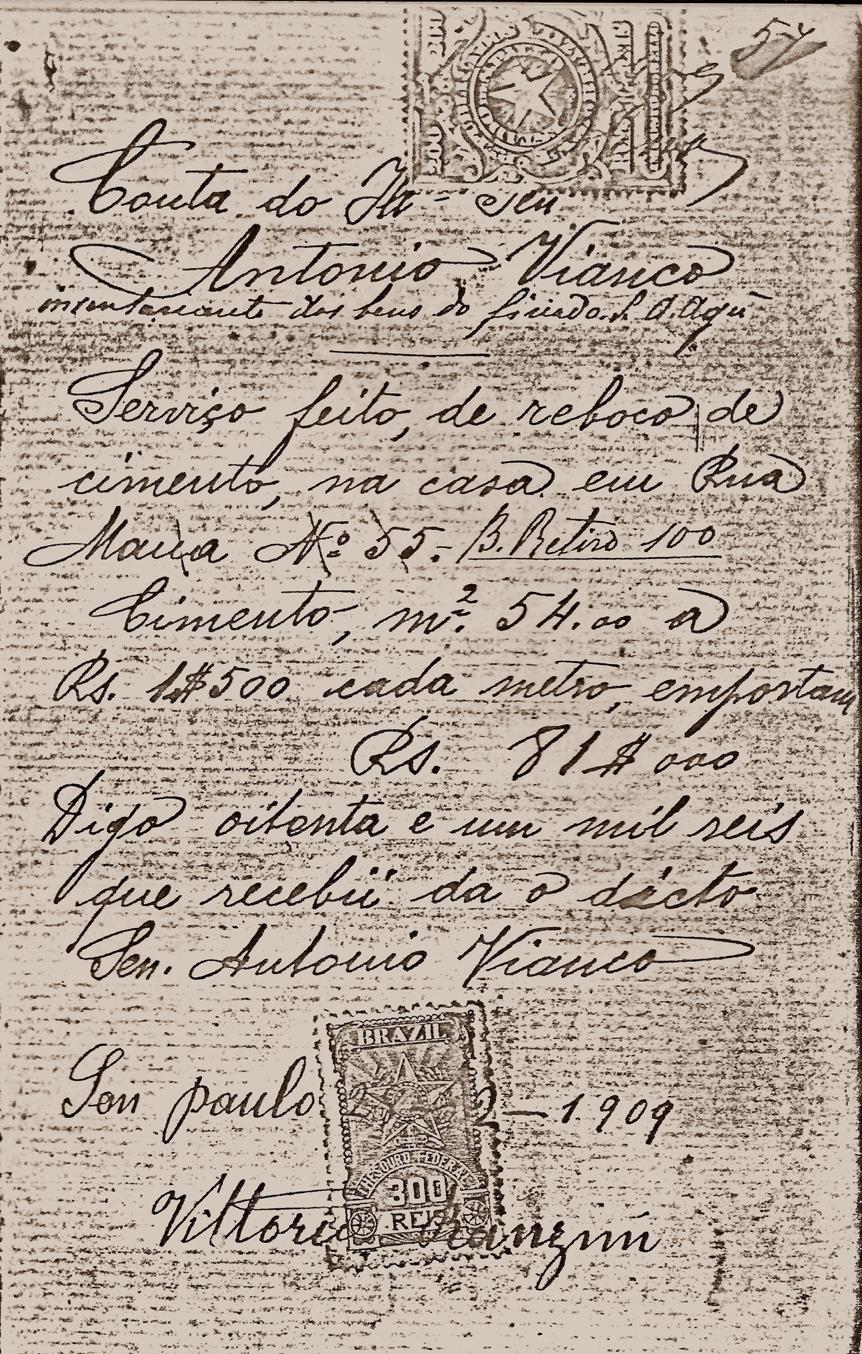 57
Conta do Illº Sen
Antonio Vianco
inventariante dos bens do finado S. A. Aqú
Serviço feito, de reboco de
cimento, na casa em Rua
Maua Nº 55. B. Retiro 100
Cimento, m². 54.00 a
Rs. 1$500 cada metro, emportam
Rs. 81$000
Digo oitenta e um mil reis
que recebii da o dicto
Sen. Antonio Vianco
BRAZIL
Sen paulo 2-1909
THESOURO FEDERAL
300
REIS